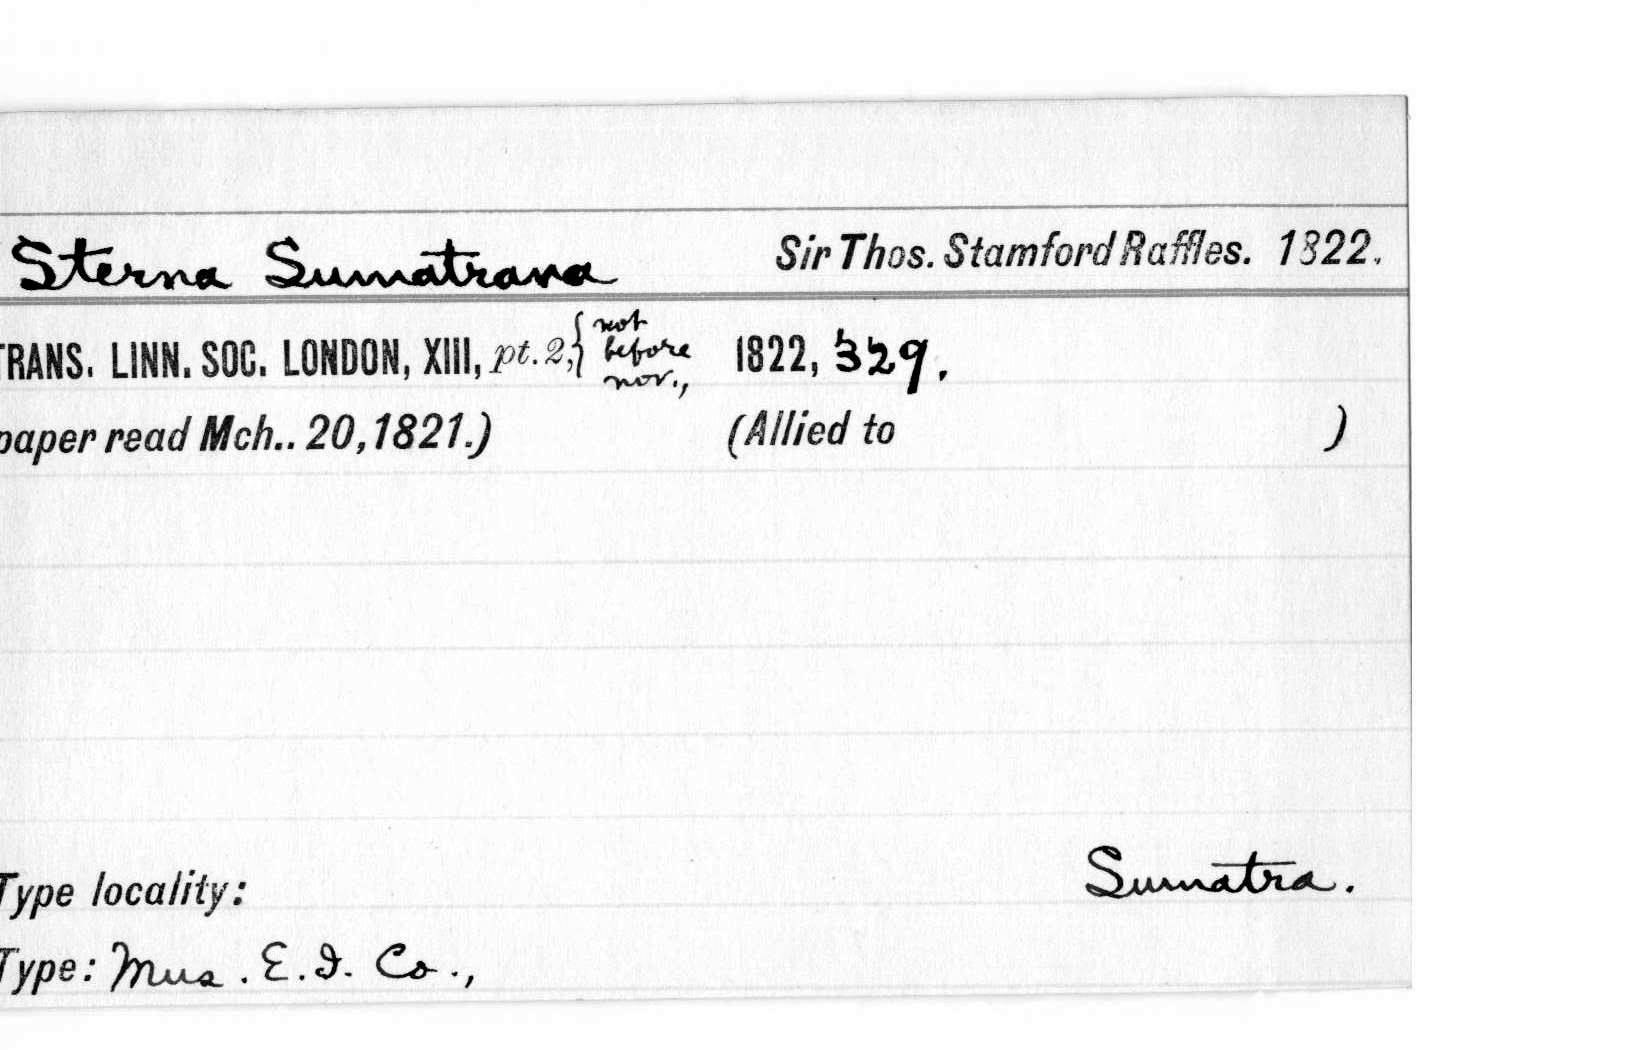 Sterna Sumatrana Sir Thos. Stamford Raffles. 1822.
TRANS. LINN. SOC. LONDON, XIII, pt. 2, { not before nov., 1822, 329.
paper read Mch.. 20, 1821.) (Allied to )
Type locality: Sumatra.
Type: Mus. E. I. Co.,